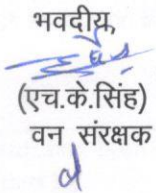 भवदीय,
(एच.के.सिंह)
वन संरक्षक